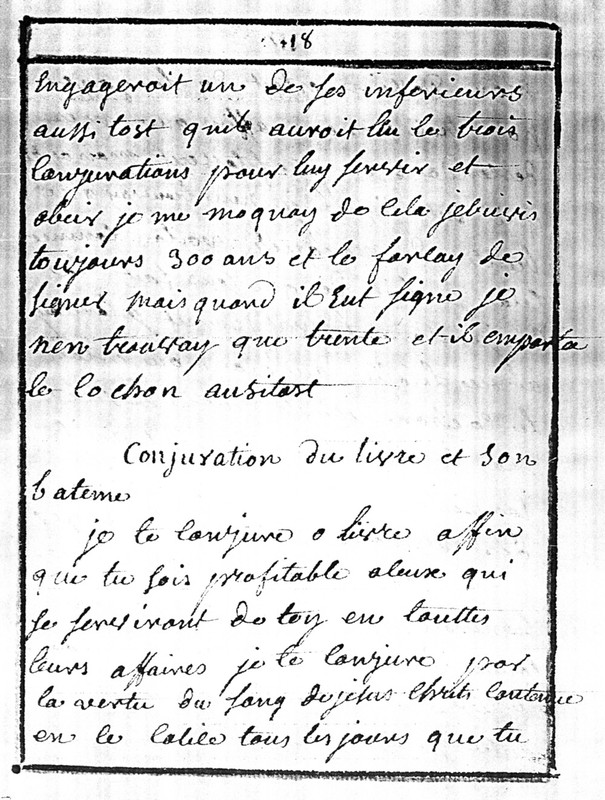 18
Engageroit un de ses inferieurs
aussi tost quil auroit lu le trois
Conjurations pour luy servir et
obeir je me moquay de cela jebuvis
toujours 300 ans et le forlay de
signer mais quand il Eut signe je
nen trouvay que trente et il emporta
le cochon ausitost
Conjuration du livre et son
bateme
je te conjure o livre affin
que tu sois profitable aceux qui
se serviront de toy en touttes
leurs affaires je te conjure par
la vertu du sang dejesus Christ contenue
en le calice tous les jours que tu